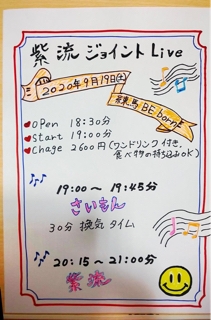 紫流 ジョイント Live
2020年9月19日(土)
練馬 BE born
Open 18:30分
Start 19:00分
Chage 2600円(ワンドリンク付き、
食べ物の持ち込みOK)
19:00～19:45分
さいもん
30分 換気タイム
20:15～21:00分
紫流